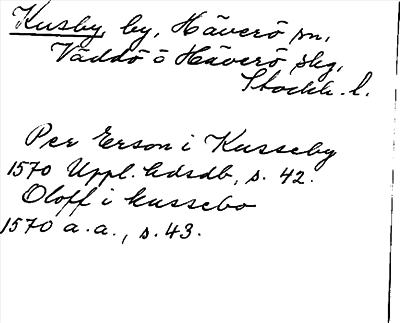 Kusby, by, Häverö sn,
Väddö o Häverö slg,
Stockh. l.
Per Erson i Kusseby
1570 Uppl. hdsdb, s. 42.
Oloff i kussebo
1570 a.a., s. 43.